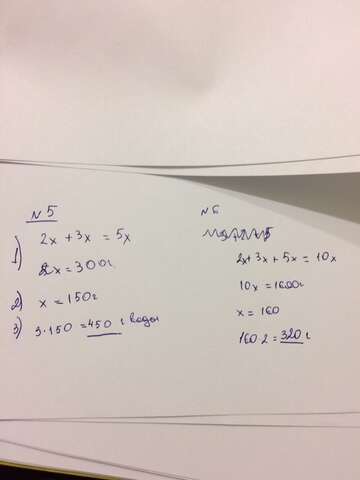 №5
1) 2x + 3x = 5x
2x = 300г
2) x = 150г
3) 3·150 = 450 г воды
№6
2x + 3x + 5x = 10x
10x = 1600г
x = 160
160·2 = 320 г